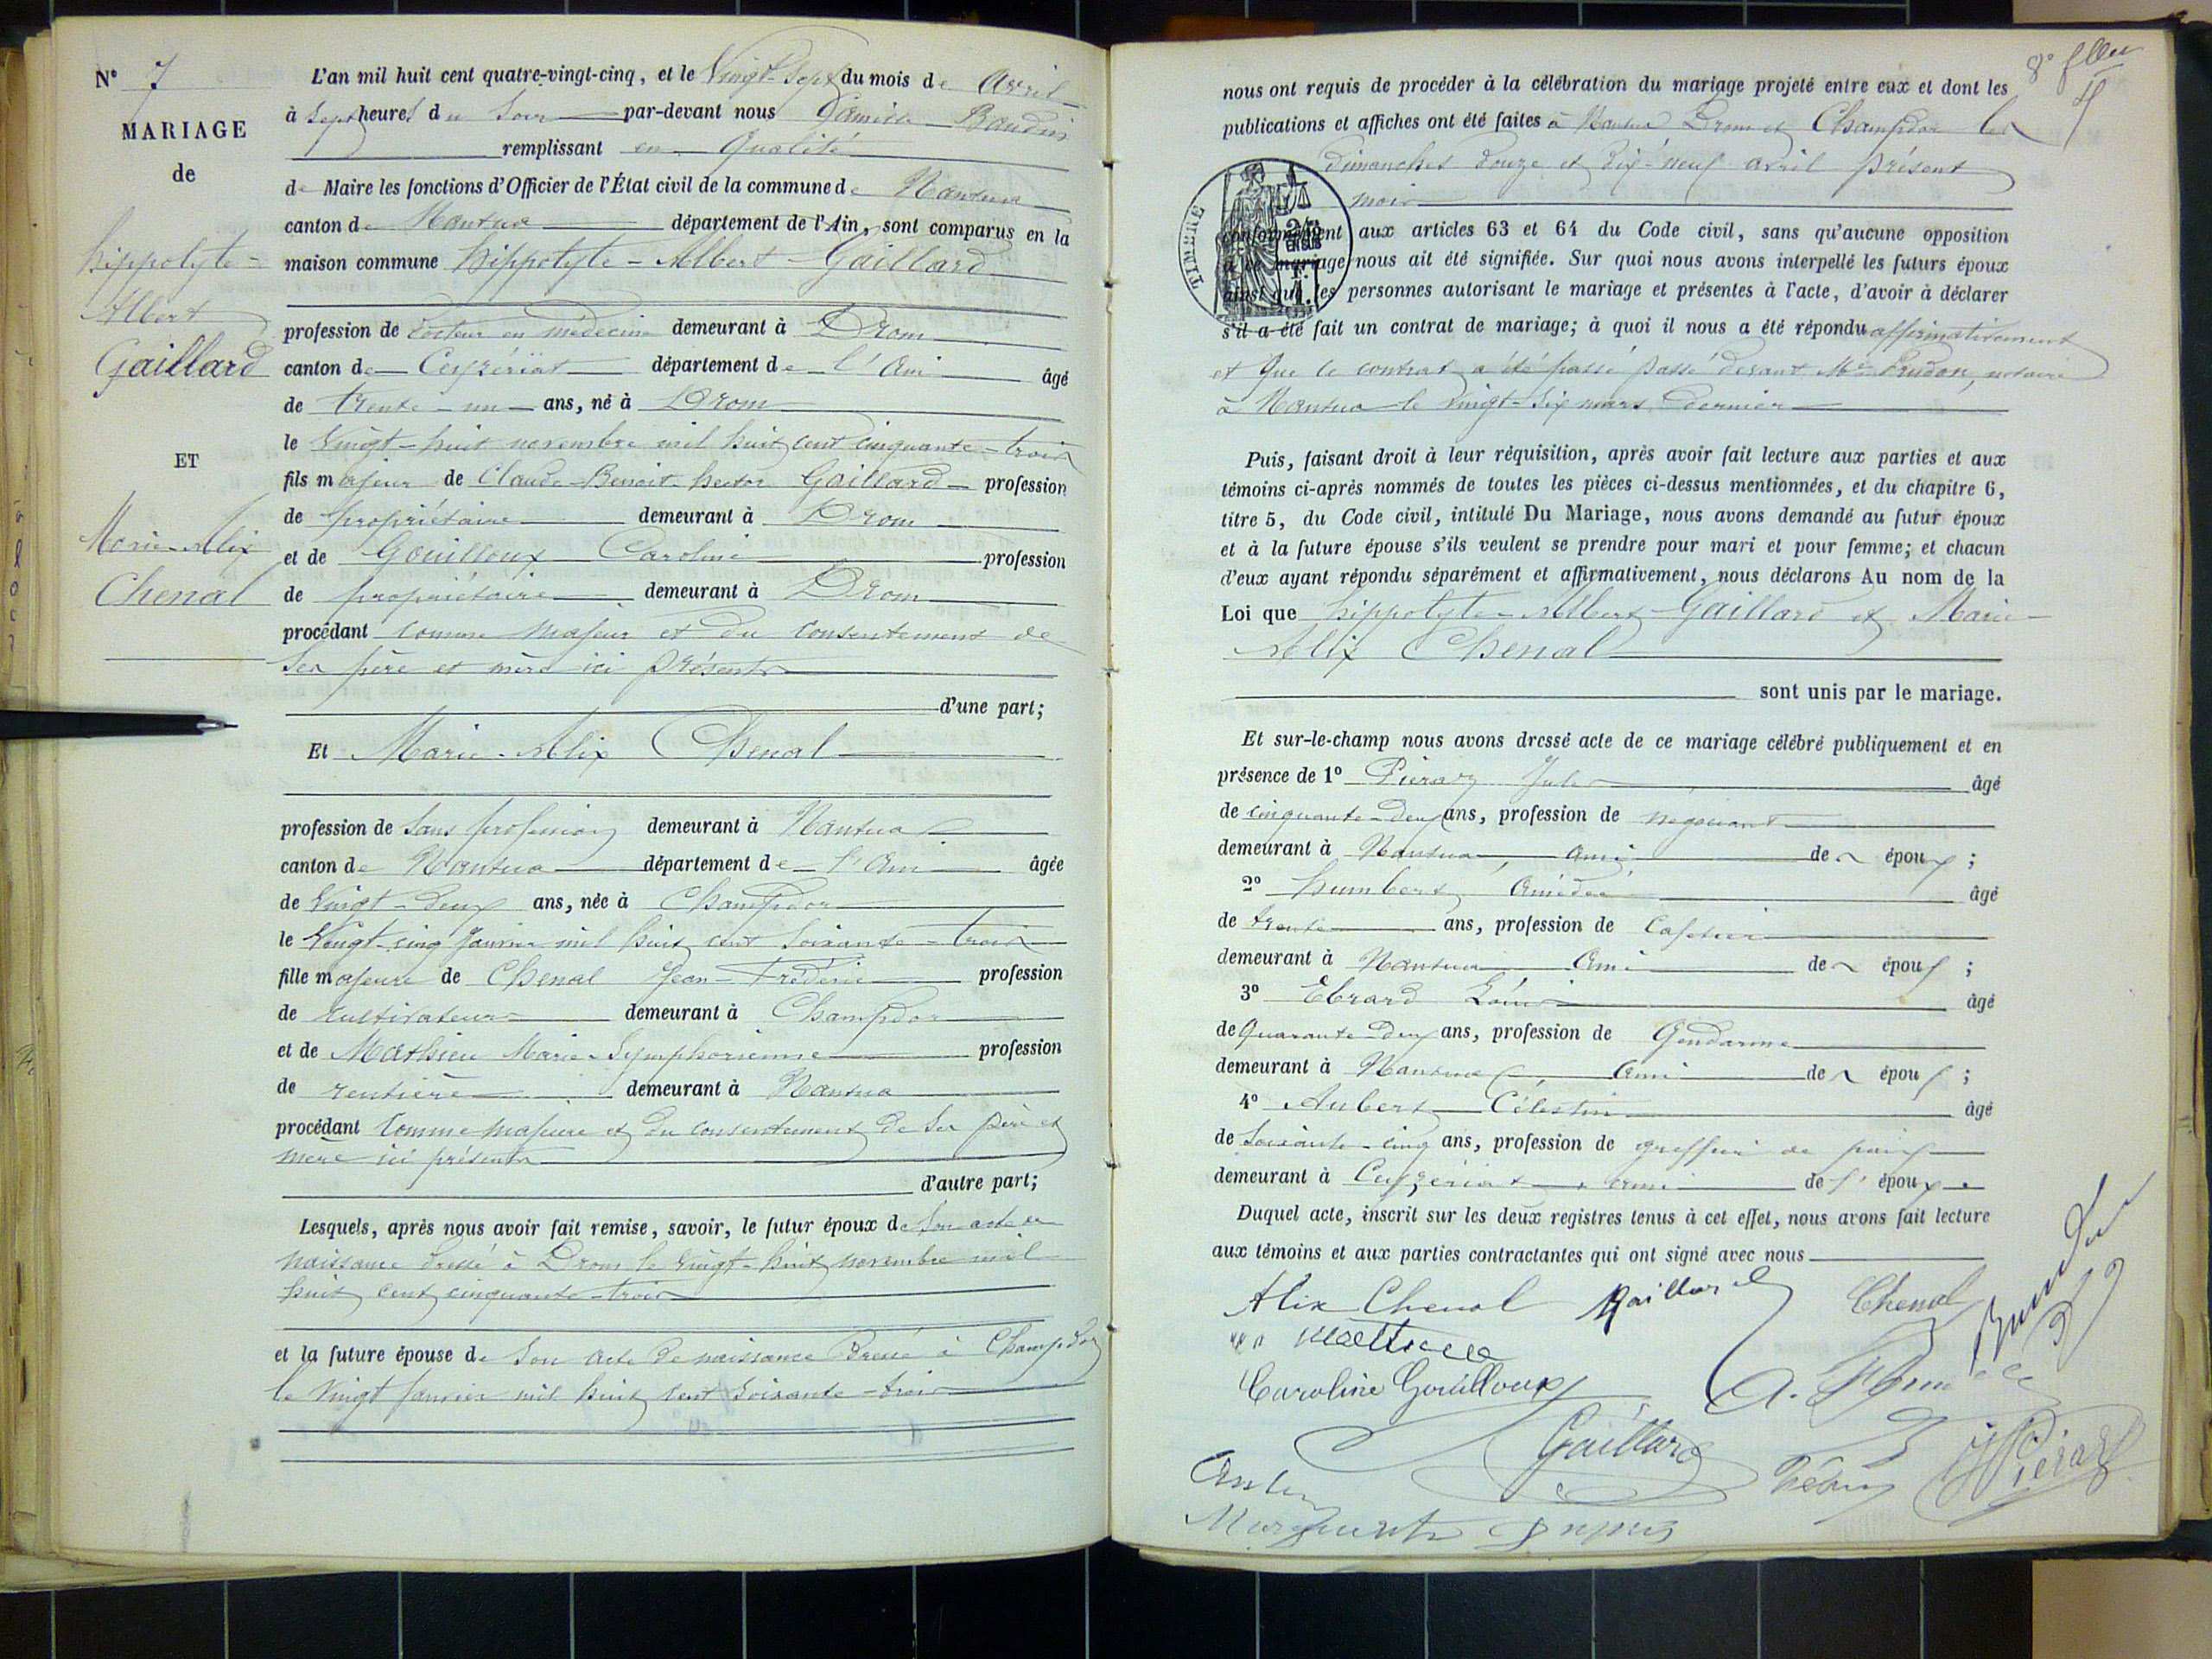 N° 7
MARIAGE
de
hippolyte-
Albert
Gaillard
ET
Marie-Alix
Chenal
L'an mil huit cent quatre-vingt-cinq, et le Vingt-Sept du mois de Avril
à Sept heures du Soir par-devant nous Camille Baudin
remplissant en Qualité
de Maire les fonctions d'Officier de l'État civil de la commune de Nantua
canton de Nantua département de l'Ain, sont comparus en la
maison commune hippolyte-Albert-Gaillard
profession de Docteur en médecine demeurant à Drom
canton de Ceyzériat département de l'Ain âgé
de trente-un ans, né à Drom
le Vingt-huit novembre mil huit cent cinquante-trois
fils majeur de Claude-Benoit-hector Gaillard profession
de propriétaire demeurant à Drom
et de Gouilloux Caroline profession
de propriétaire demeurant à Drom
procédant comme Majeur et du consentement de
Ses père et mère ici présents
d'une part;
Et Marie-Alix Chenal
profession de Sans profession demeurant à Nantua
canton de Nantua département de l'Ain âgée
de Vingt-deux ans, née à Champdor
le Vingt-cinq Janvier mil huit cent Soixante-trois
fille majeure de Chenal Jean-Frédéric profession
de cultivateur demeurant à Champdor
et de Mathieu Marie-Symphorienne profession
de rentière demeurant à Nantua
procédant comme majeure et du consentement de Ses père et
mère ici présents
d'autre part;
Lesquels, après nous avoir fait remise, savoir, le futur époux de Son acte de
naissance dressé à Drom le Vingt-huit novembre mil
huit cent cinquante-trois
et la future épouse de Son acte de naissance dressé à Champdor
le Vingt Janvier mil huit cent Soixante-trois
8e flleu
nous ont requis de procéder à la célébration du mariage projeté entre eux et dont les
publications et affiches ont été faites à Nantua Drom et Champdor les
Dimanches douze et dix-neuf avril présent
mois
TIMBRE
conformément aux articles 63 et 64 du Code civil, sans qu'aucune opposition
à ce mariage nous ait été signifiée. Sur quoi nous avons interpellé les futurs époux
ainsi que les personnes autorisant le mariage et présentes à l'acte, d'avoir à déclarer
s'il a été fait un contrat de mariage; à quoi il nous a été répondu affirmativement
et Que le contrat a été passé passé devant Me Prudon, notaire
à Nantua le vingt-six mars dernier
Puis, faisant droit à leur réquisition, après avoir fait lecture aux parties et aux
témoins ci-après nommés de toutes les pièces ci-dessus mentionnées, et du chapitre 6,
titre 5, du Code civil, intitulé Du Mariage, nous avons demandé au futur époux
et à la future épouse s'ils veulent se prendre pour mari et pour femme; et chacun
d'eux ayant répondu séparément et affirmativement, nous déclarons Au nom de la
Loi que hippolyte-Albert-Gaillard et Marie-
Alix Chenal
sont unis par le mariage.
Et sur-le-champ nous avons dressé acte de ce mariage célébré publiquement et en
présence de 1° Pirard Jules âgé
de cinquante-deux ans, profession de négociant
demeurant à Nantua, ami des époux;
2° humbert Amédée âgé
de trente ans, profession de Cafetier
demeurant à Nantua Ami des époux;
3° Ebrard Louis âgé
de Quarante-deux ans, profession de Gendarme
demeurant à Nantua, Ami des époux;
4° Aubert Célestin âgé
de Soixante-cinq ans, profession de greffier de paix
demeurant à Ceyzériat, ami de l'époux.
Duquel acte, inscrit sur les deux registres tenus à cet effet, nous avons fait lecture
aux témoins et aux parties contractantes qui ont signé avec nous
Alix Chenal Gaillard Chenal
Caroline Gouilloux
Gaillard